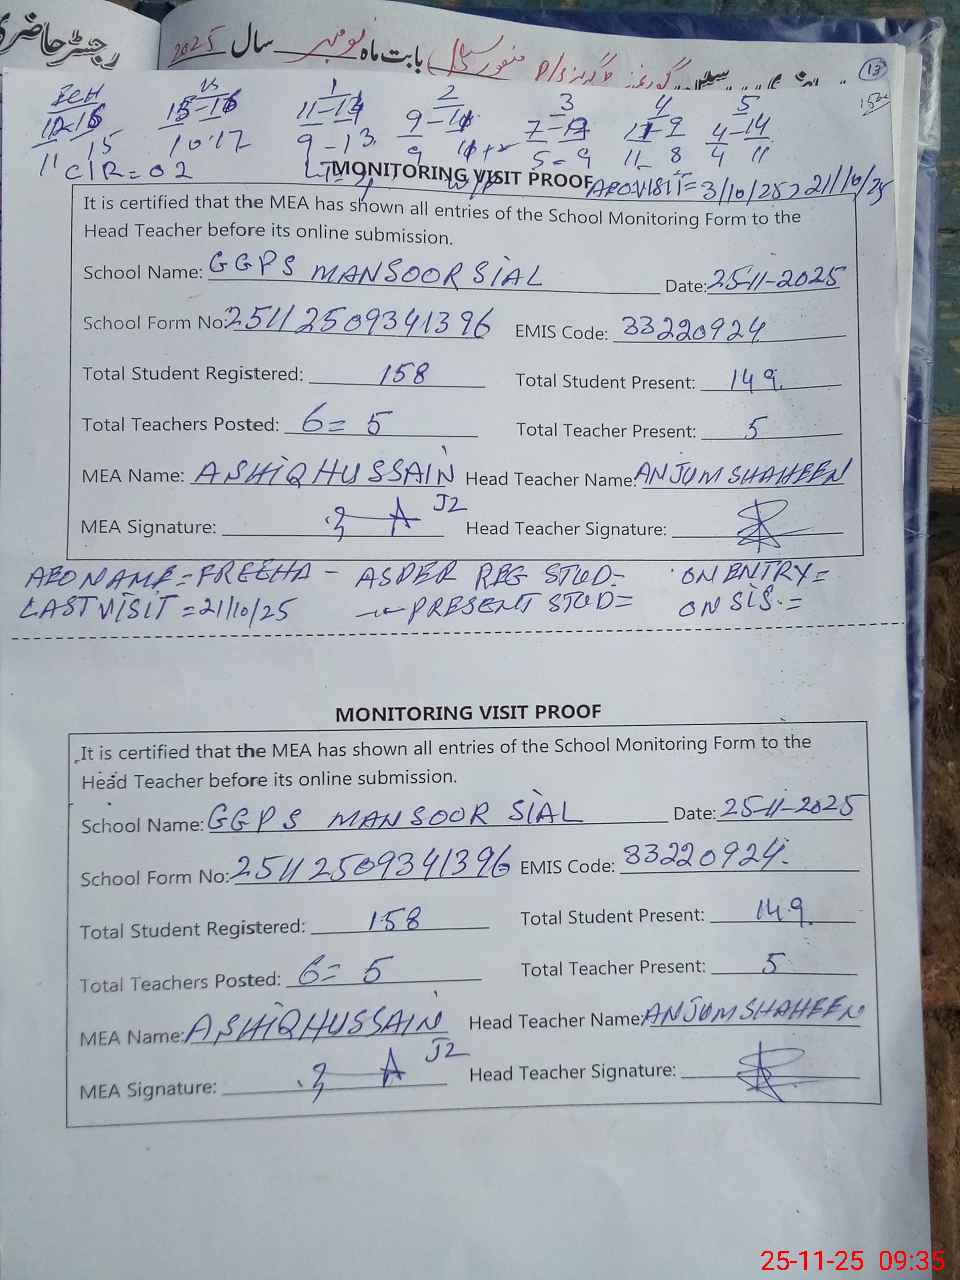 رجسٹر حاضری
بابت ماہ نومبر سال 2025
13
ECH 1 2 3 4 5
15-16 9-11 4-14
15 10.17 9-13 9 5-9 11 8 4 11
11 C/R=02
MONITORING VISIT PROOF AEO.VISIT=3/10/25, 21/10/25
It is certified that the MEA has shown all entries of the School Monitoring Form to the
Head Teacher before its online submission.
School Name: GGPS MANSOOR SIAL Date: 25-11-2025
School Form No: 25112509341396 EMIS Code: 33220924
Total Student Registered: 158 Total Student Present: 149
Total Teachers Posted: 6=5 Total Teacher Present: 5
MEA Name: ASHIQ HUSSAIN Head Teacher Name: ANJUM SHAHEEN
MEA Signature: J2 Head Teacher Signature:
AEO NAME=FREEHA - AS PER REG STUD= ON ENTRY=
LAST VISIT=21/10/25 PRESENT STUD= ON SIS.=
MONITORING VISIT PROOF
It is certified that the MEA has shown all entries of the School Monitoring Form to the
Head Teacher before its online submission.
School Name: GGPS MANSOOR SIAL Date: 25-11-2025
School Form No: 25112509341396 EMIS Code: 33220924.
Total Student Registered: 158 Total Student Present: 149.
Total Teachers Posted: 6=5 Total Teacher Present: 5
MEA Name: ASHIQ HUSSAIN Head Teacher Name: ANJUM SHAHEEN
MEA Signature: J2 Head Teacher Signature:
25-11-25 09:35